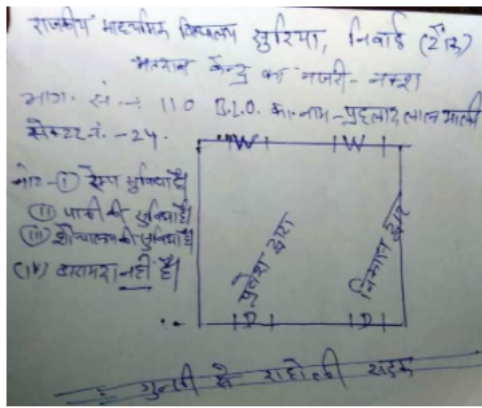 राजकीय माध्यमिक विद्यालय सुरिया, निवाई (टोंक)
मतदान केन्द्र का नजरी-नक्शा
भाग सं.-: 110 B.L.O. का नाम-प्रहलाद लाल माली
सेक्टर नं. -24.
W W
नोट-(i) रेम्प सुविधा है।
(ii) पानी की सुविधा है।
(iii) शौचालय की सुविधा है।
(iv) बारामदा नहीं है।
प्रवेश द्वार
निकास द्वार
D D
से राहोली सड़क